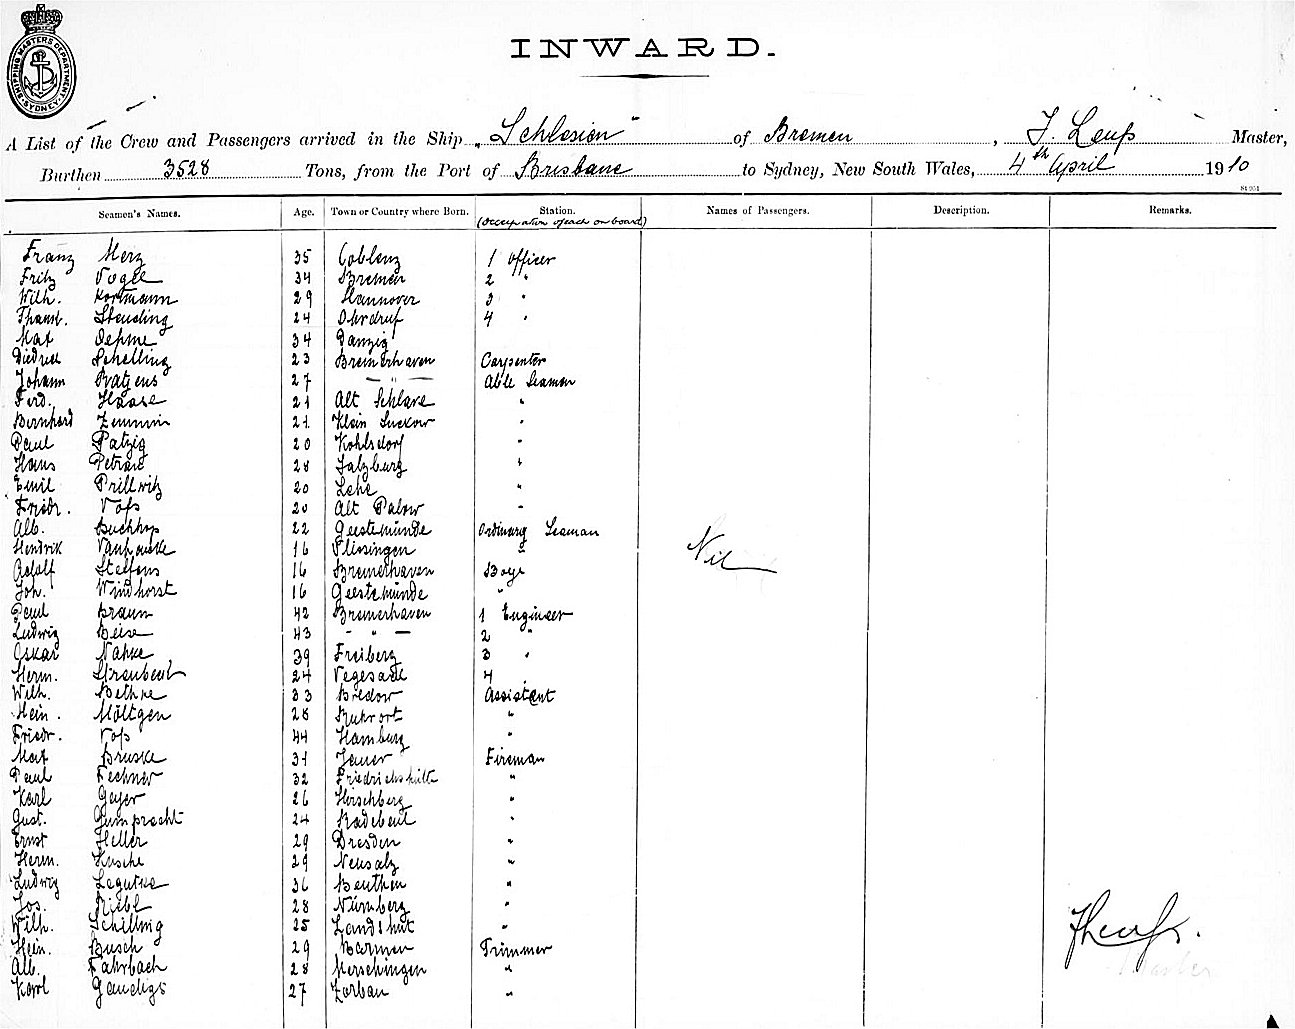 SHIPPING MASTER'S DEPARTMENT SYDNEY
INWARD.
A List of the Crew and Passengers arrived in the Ship "Schlesien" of Bremen, Master,
Burthen 3528 Tons, from the Port of Brisbane to Sydney, New South Wales, 4th April 1910
Seamen's Names. Age. Town or Country where Born. Station. Names of Passengers. Description. Remarks.
(Occupation of each on board)
Franz Merz 35 Coblenz 1 Officer
Fritz Vogel 34 Bremen 2 "
Wilh. Kortmann 29 Hannover 3 "
Steuding 24 Ohrdruf 4 "
Max Oehme 34 Danzig
Diedrich Schelling 23 Bremerhaven Carpenter
Johann Ratjens 27 — " — Able Seaman
Ferd. Haase 21 Alt Schlawe "
Bernhard Zemmin 21 Klein Suckow "
Paul Patzig 20 Kohlsdorf "
Hans 28 Salzburg "
Emil Prillwitz 20 Lehe "
Friedr. Voß 20 Alt Palow "
Alb. Buchhop 22 Geestemünde Ordinary Seaman
Hendrik 16 Vlissingen "
Nil
Adolf Steffens 16 Bremerhaven Boys
Joh. Windhorst 16 Geestemünde "
Paul Braun 42 Bremerhaven 1 Engineer
Ludwig Beise 43 — " — 2 "
Oskar 39 Freiberg 3 "
Herm. 24 Vegesack 4 "
Wilh. Bethke 33 Bredow Assistent
Hein. Möltgen 28 Ruhrort "
Friedr. Voß 44 Hamburg "
Max Bruske 31 Jauer Fireman
Paul Fechner 32 Friedrichshütte "
Karl Geyer 26 Hirschberg "
Gust. Gumprecht 24 Radebeul "
Ernst Heller 29 Dresden "
Herm. Kusche 29 Neusalz "
Ludwig 36 Beuthen "
Jos. Riebl 28 Nürnberg "
Wilh. Schilling 25 Landshut "
Hein. Busch 29 Barmen Trimmer
Alb. Fahrbach 28 Merchingen "
Master
Karl 27 Zerbau "